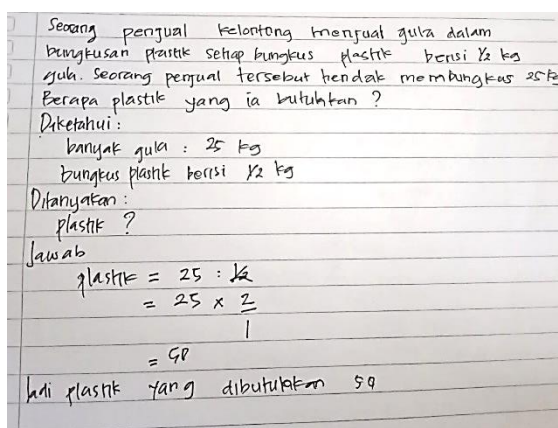 Seorang penjual kelontong menjual gula dalam
bungkusan plastik setiap bungkus plastik berisi 1/2 kg
gula. Seorang penjual tersebut hendak membungkus 25 kg
Berapa plastik yang ia butuhkan ?
Diketahui :
banyak gula : 25 kg
bungkus plastik berisi 1/2 kg
Ditanyakan :
plastik ?
Jawab
plastik = 25 : 1/2
= 25 x 2
1
= 50
Jadi plastik yang dibutuhkan 50